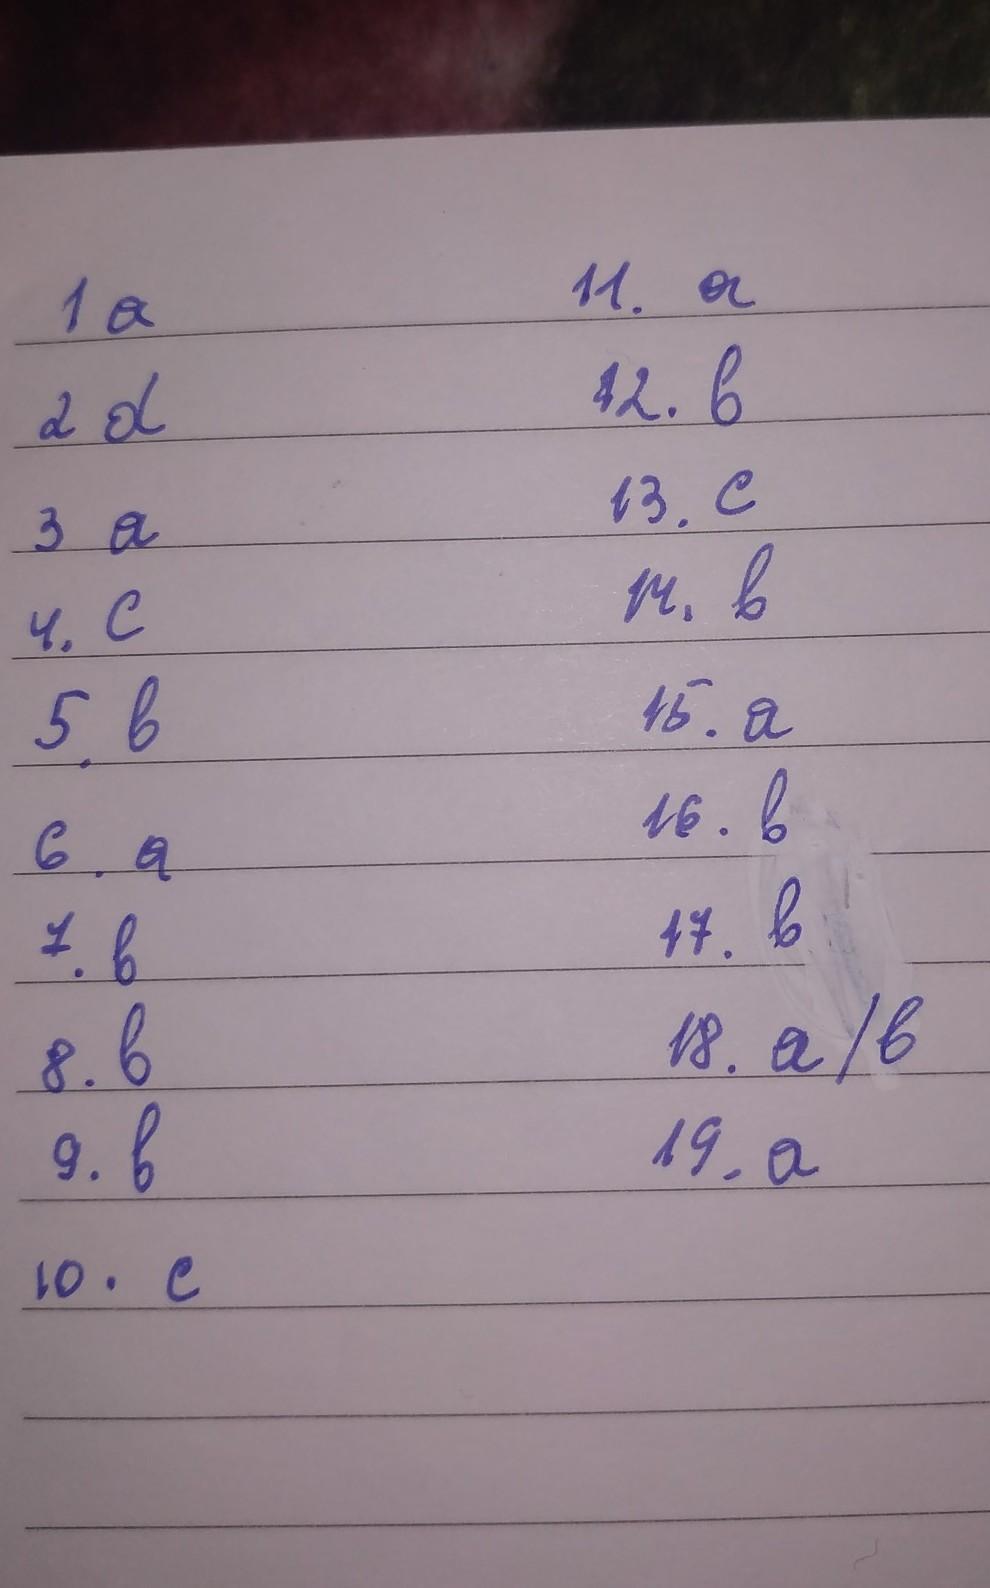 1 a
2 d
3 a
4. c
5. b
6. a
7. b
8. b
9. b
10. c
11. a
12. b
13. c
14. b
15. a
16. b
17. b
18. a/b
19. a